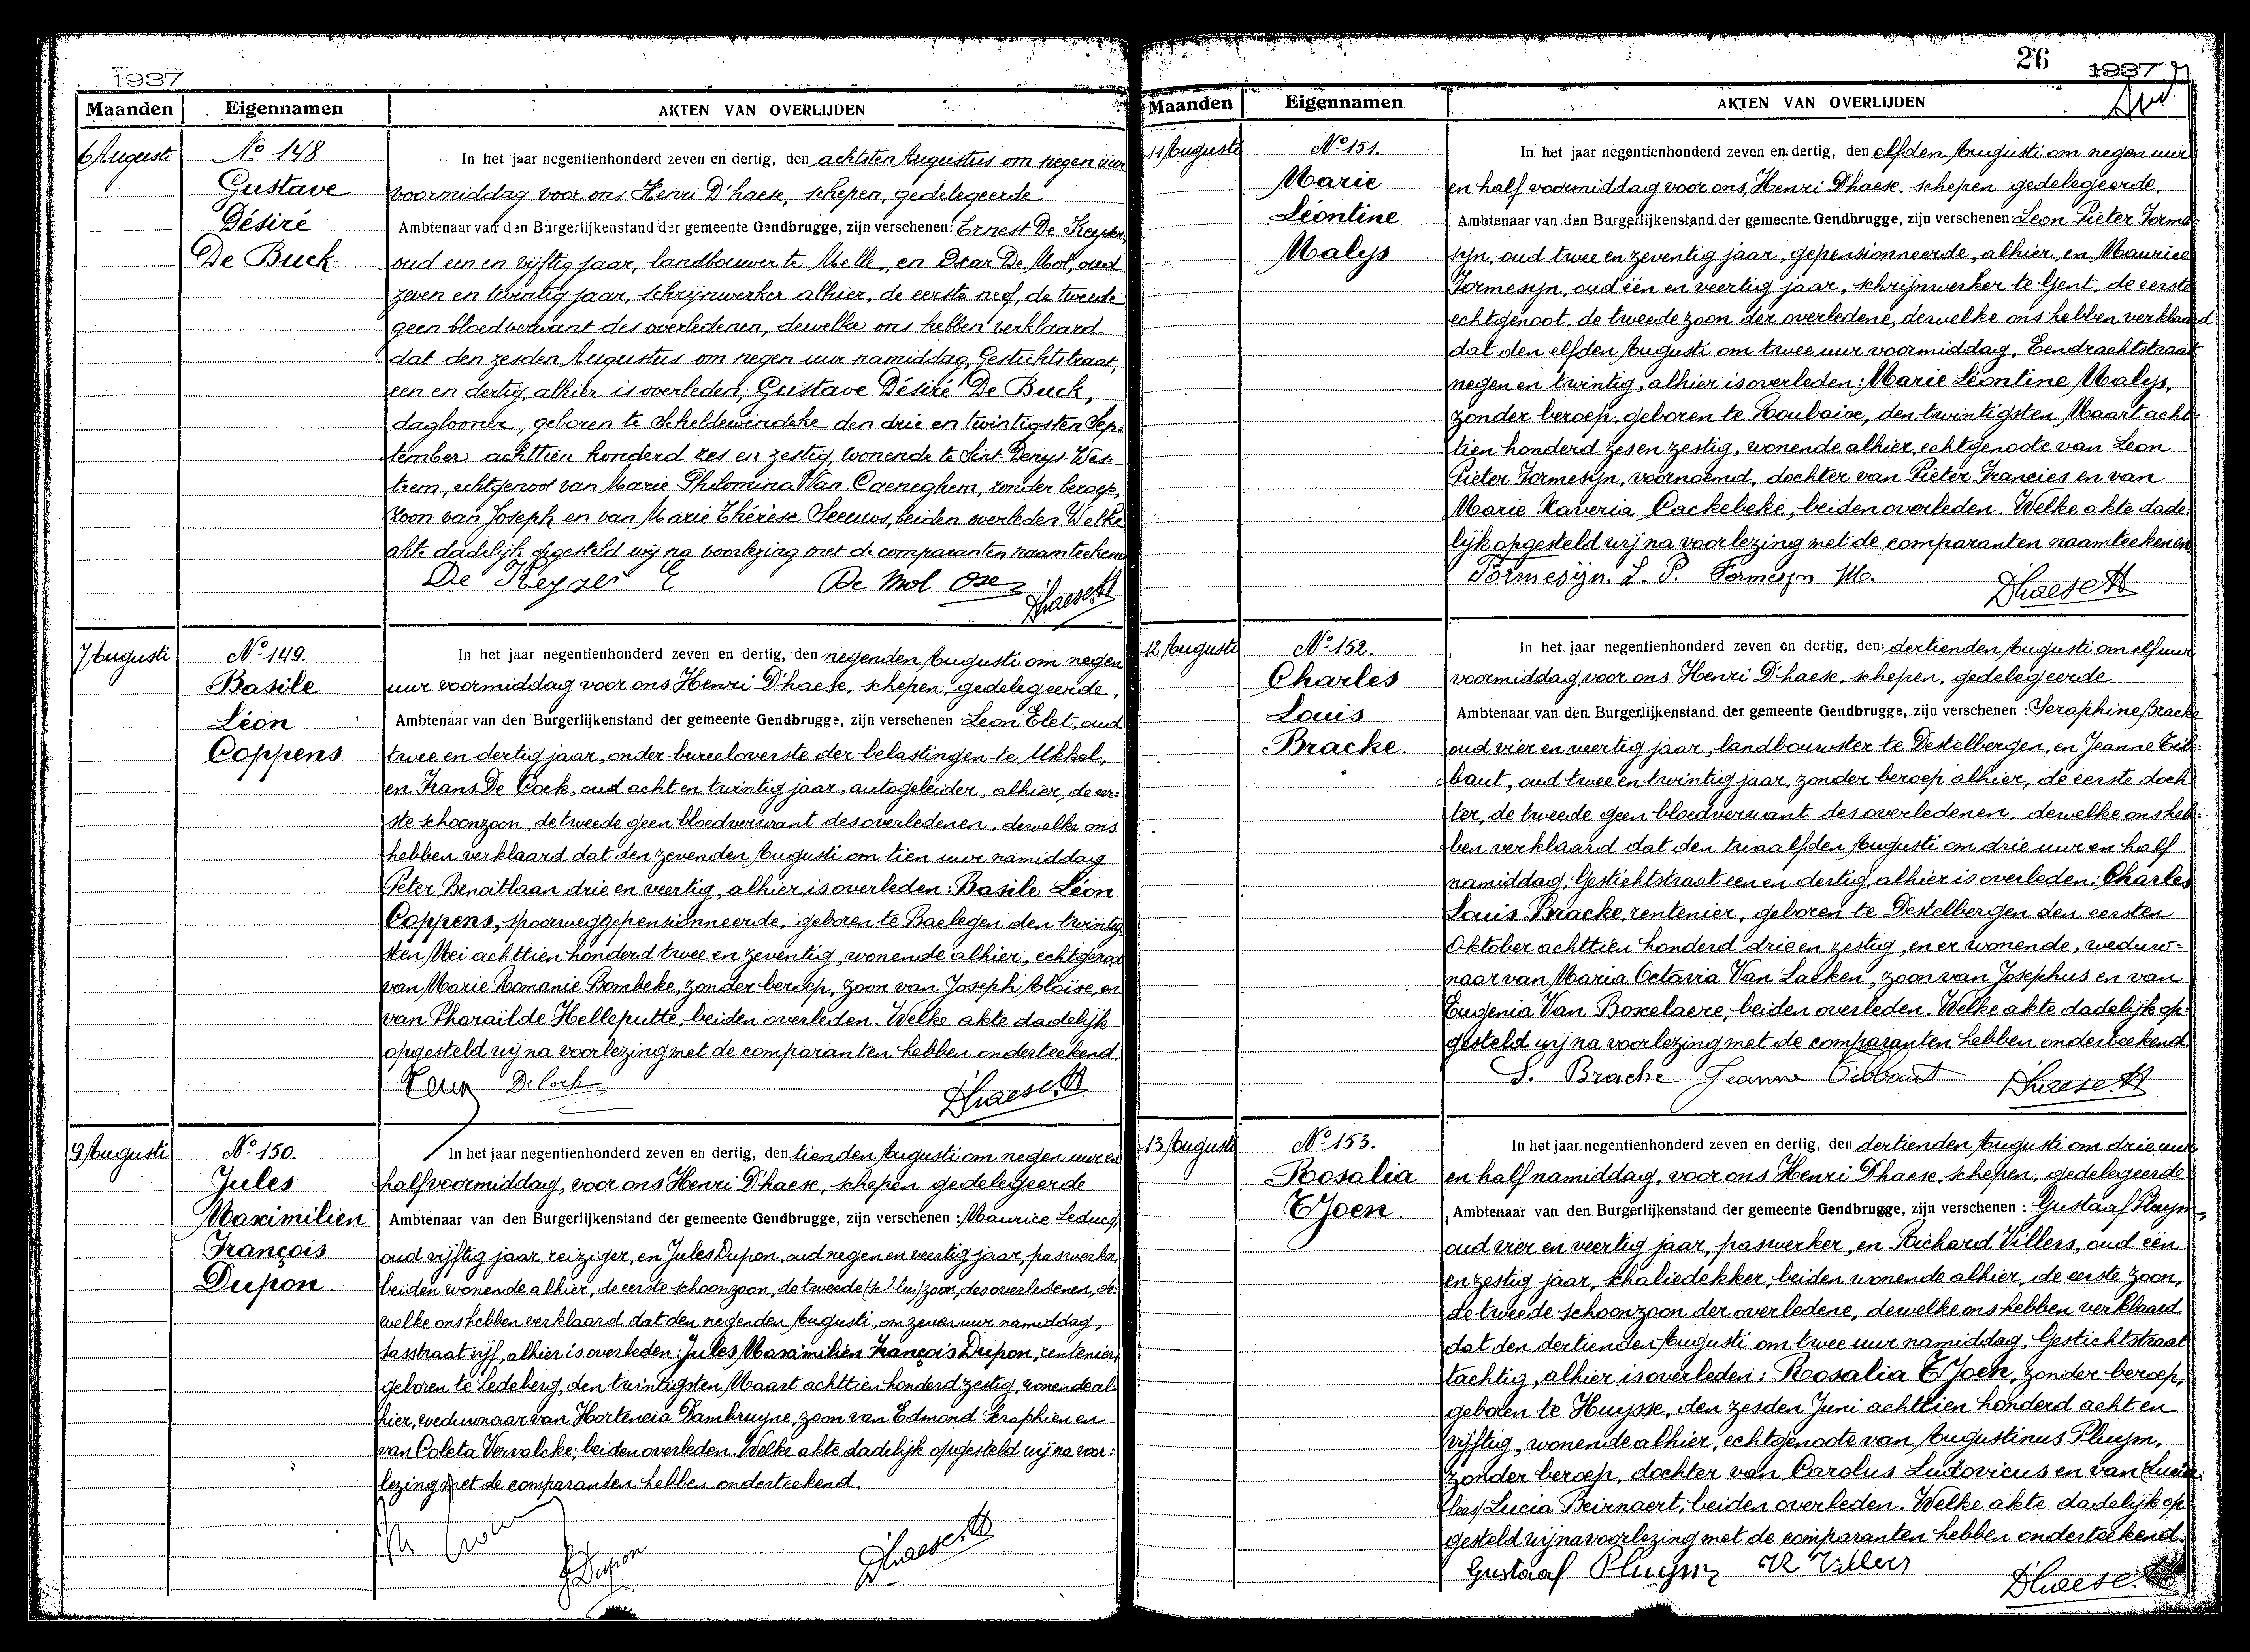 1937
Maanden Eigennamen AKTEN VAN OVERLIJDEN
6 Augusti
No 148
Gustave
Désiré
De Buck
In het jaar negentienhonderd zeven en dertig, den achtsten Augustus om negen uur
voormiddag voor ons Henri D'haese, schepen, gedelegeerde
Ambtenaar van den Burgerlijkenstand der gemeente Gendbrugge, zijn verschenen: Ernest De Keyser,
oud een en vijftig jaar, landbouwer te Melle, en Oscar De Mol, oud
zeven en twintig jaar, schrijnwerker alhier, de eerste neef, de tweede
geen bloedverwant des overledenen, dewelke ons hebben verklaard
dat den zesden Augustus om negen uur namiddag, Gestichtstraat,
een en dertig, alhier is overleden; Gustave Désiré De Buck,
daglooner, geboren te Scheldewindeke den drie en twintigsten Sep-
tember achttien honderd zes en zestig, wonende te Sint Denys-Wes-
trem, echtgenoot van Marie Philomina Van Caeneghem, zonder beroep,
zoon van Joseph en van Marie Thérèse Seeuws, beiden overleden. Welke
akte dadelijk opgesteld wij na voorlezing met de comparanten naamteekenen
De Keyzer E De Mol Osc D'haese H
7 Augusti
No 149.
Basile
Léon
Coppens
In het jaar negentienhonderd zeven en dertig, den negenden Augusti om negen
uur voormiddag voor ons Henri D'haese, schepen, gedelegeerde,
Ambtenaar van den Burgerlijkenstand der gemeente Gendbrugge, zijn verschenen: Leon Elet, oud
twee en dertig jaar, onder-bureeloverste der belastingen te Ukkel,
en Frans De Cock, oud acht en twintig jaar, autogeleider, alhier, de eer-
ste schoonzoon, de tweede geen bloedverwant des overledenen, dewelke ons
hebben verklaard dat den zevenden Augusti om tien uur namiddag
Peter Benoitlaan drie en veertig, alhier is overleden: Basile Léon
Coppens, spoorweggepensionneerde, geboren te Baelegem den twintig-
sten Mei achttien honderd twee en zeventig, wonende alhier, echtgenoot
van Marie Romanie Bombeke, zonder beroep, zoon van Joseph Aloïse, en
van Pharaïlde Helleputte, beiden overleden. Welke akte dadelijk
opgesteld wij na voorlezing met de comparanten hebben onderteekend
De Cock D'haese H
9 Augusti
No 150.
Jules
Maximilien
François
Dupon
In het jaar negentienhonderd zeven en dertig, den tienden Augusti om negen uur en
half voormiddag, voor ons Henri D'haese, schepen gedelegeerde
Ambtenaar van den Burgerlijkenstand der gemeente Gendbrugge, zijn verschenen: Maurice Leducq,
oud vijftig jaar, reiziger, en Jules Dupon, oud negen en veertig jaar, paswerker,
beiden wonende alhier, de eerste schoonzoon, de tweede zoon, des overledenen, de-
welke ons hebben verklaard dat den negenden Augusti, om zeven uur namiddag,
Tasstraat vijf, alhier is overleden: Jules Maximilien François Dupon, rentenier,
geboren te Ledeberg, den twintigsten Maart achttien honderd zestig, wonende al-
hier, weduwnaar van Hortencia Dambruyne, zoon van Edmond Seraphien en
van Coleta Vervalcke, beiden overleden. Welke akte dadelijk opgesteld wij na voor-
lezing met de comparanten hebben onderteekend.
J Dupon D'haese H
26
1937
Maanden Eigennamen AKTEN VAN OVERLIJDEN
11 Augusti
No 151.
Marie
Léontine
Malys
In het jaar negentienhonderd zeven en dertig, den elfden Augusti om negen uur
en half voormiddag voor ons, Henri D'haese, schepen gedelegeerde,
Ambtenaar van den Burgerlijkenstand der gemeente Gendbrugge, zijn verschenen: Leon Pieter Forme-
syn, oud twee en zeventig jaar, gepensionneerde, alhier, en Maurice
Formesyn, oud één en veertig jaar, schrijnwerker te Gent, de eerste
echtgenoot, de tweede zoon der overledene, dewelke ons hebben verklaard
dat den elfden Augusti om twee uur voormiddag, Eendrachtstraat
negen en twintig, alhier is overleden: Marie Léontine Malys,
zonder beroep, geboren te Roubaix, den twintigsten Maart acht-
tien honderd zes en zestig, wonende alhier, echtgenoote van Leon
Pieter Formesyn, voornoemd, dochter van Pieter Francies en van
Marie Xaveria Cackebeke, beiden overleden. Welke akte dade-
lijk opgesteld wij na voorlezing met de comparanten naamteekenen
Formesyn. L. P. Formesyn M. D'haese H
12 Augusti
No 152.
Charles
Louis
Bracke.
In het jaar negentienhonderd zeven en dertig, den dertienden Augusti om elf uur
voormiddag, voor ons Henri D'haese, schepen, gedelegeerde
Ambtenaar van den Burgerlijkenstand der gemeente Gendbrugge, zijn verschenen: Seraphine Bracke
oud vier en veertig jaar, landbouwster te Destelbergen, en Jeanne Tib-
baut, oud twee en twintig jaar, zonder beroep alhier, de eerste doch-
ter, de tweede geen bloedverwant des overledenen, dewelke ons heb-
ben verklaard dat den twaalfden Augusti om drie uur en half
namiddag, Gestichtstraat een en dertig, alhier is overleden: Charles
Louis Bracke, rentenier, geboren te Destelbergen den eersten
Oktober achttien honderd drie en zestig, en er wonende, weduw-
naar van Maria Octavia Van Laeken, zoon van Josephus en van
Eugenia Van Boxelaere, beiden overleden. Welke akte dadelijk op-
gesteld wij na voorlezing met de comparanten hebben onderteekend
S. Bracke Jeanne Tibbaut D'haese H
13 Augusti
No 153.
Rosalia
T'Joen.
In het jaar negentienhonderd zeven en dertig, den dertienden Augusti om drie uur
en half namiddag, voor ons Henri D'haese, schepen, gedelegeerde
Ambtenaar van den Burgerlijkenstand der gemeente Gendbrugge, zijn verschenen: Gustaaf Pluym,
oud vier en veertig jaar, paswerker, en Richard Villers, oud één
en zestig jaar, schaliedekker, beiden wonende alhier, de eerste zoon,
de tweede schoonzoon der overledene, dewelke ons hebben verklaard
dat den dertienden Augusti om twee uur namiddag, Gestichtstraat
tachtig, alhier is overleden: Rosalia T'Joen, zonder beroep,
geboren te Huysse, den zesden Juni achttien honderd acht en
vijftig, wonende alhier, echtgenoote van Augustinus Pluym,
zonder beroep, dochter van Carolus Ludovicus en van (Lucia
lees) Lucia Beirnaert, beiden overleden. Welke akte dadelijk op-
gesteld wij na voorlezing met de comparanten hebben onderteekend.
Gustaaf Pluym R Villers D'haese H